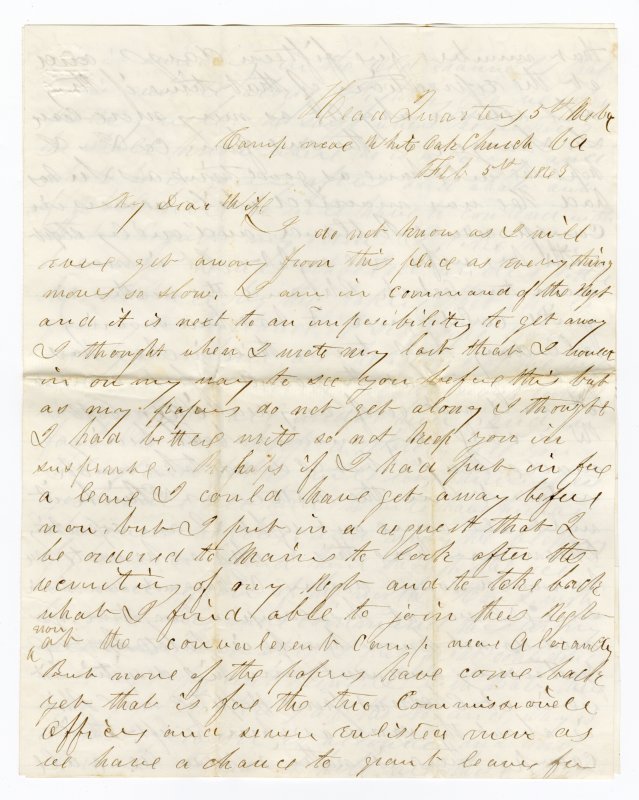 Head Quarters 5th Me
Camp near White Oak Church VA
Feb 5th 1863
My Dear Wife
I do not know as I will
ever get away from this place as everything
moves so slow. I am in command of the Regt
and it is next to an imposibility to get away
I thought when I wrote my last that I would
in on my way to see you before this but
as my papers do not get along I thought
I had better write so not keep you in
suspense. Perhaps if I had put in for
a leave I could have get away before
now but I put in a request that I
be ordered to Maine to look after the
recruiting of my Regt and to take back
what I find able to join their Regt
now
at the convalesent Camp near Alexandria
But none of the papers have come back
yet that is for the two Commissioned
Officers and seven Enlisted men as
we have a chance to grant leaves for